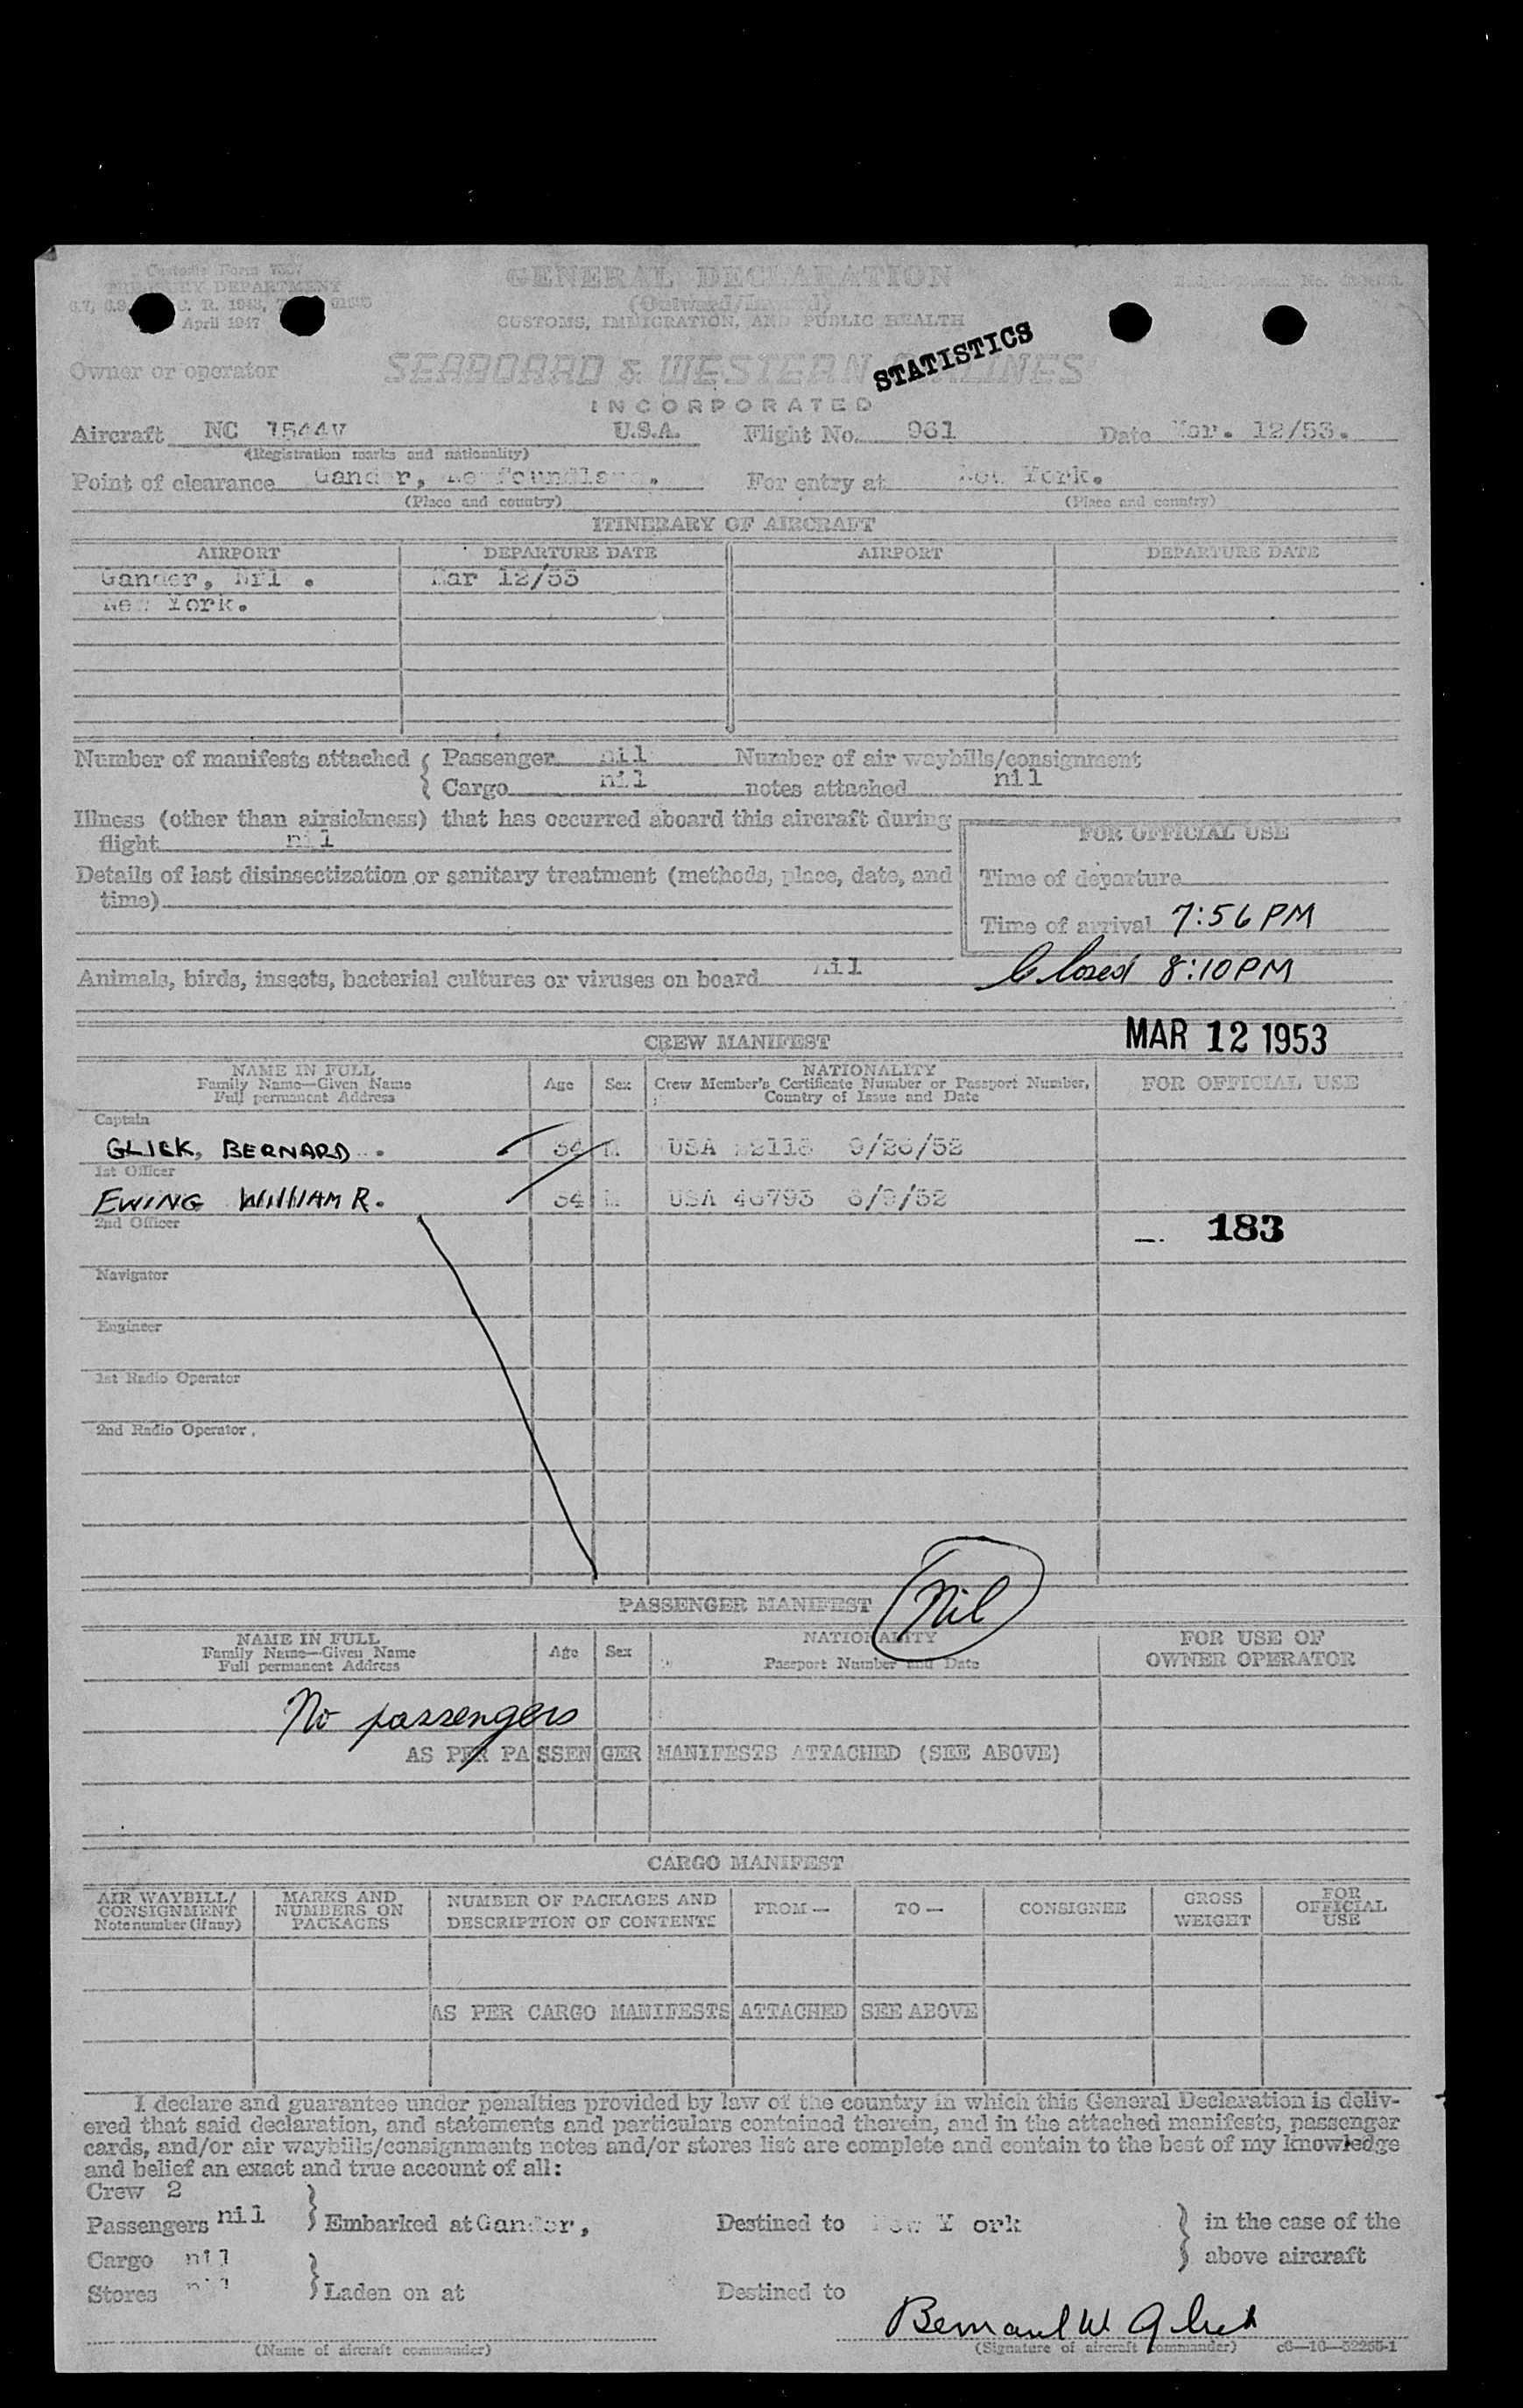 Customs Form
TREASURY DEPARTMENT
April 1947
GENERAL DECLARATION
(Outward/Inward)
CUSTOMS, IMMIGRATION, AND PUBLIC HEALTH
STATISTICS
Owner or operator SEABOARD & WESTERN AIRLINES
INCORPORATED
Aircraft NC 1544V U.S.A. Flight No. 961 Date Mar. 12/53.
(Registration marks and nationality)
Point of clearance Gander, Newfoundland. For entry at New York.
(Place and country) (Place and country)
ITINERARY OF AIRCRAFT
AIRPORT DEPARTURE DATE AIRPORT DEPARTURE DATE
Gander, Nfld. Mar 12/53
New York.
Number of manifests attached { Passenger nil Number of air waybills/consignment
Cargo nil notes attached nil
Illness (other than airsickness) that has occurred aboard this aircraft during
flight nil
FOR OFFICIAL USE
Details of last disinsectization or sanitary treatment (methods, place, date, and
time)
Time of departure
Time of arrival 7:56 PM
Closed 8:10 PM
Animals, birds, insects, bacterial cultures or viruses on board nil
MAR 12 1953
CREW MANIFEST
NAME IN FULL
Family Name—Given Name
Full permanent Address
Age Sex
NATIONALITY
Crew Member's Certificate Number or Passport Number,
Country of Issue and Date
FOR OFFICIAL USE
Captain
GLICK, BERNARD . 34 M USA 9/26/52
1st Officer
EWING WILLIAM R. 34 M USA 46793 6/9/52
2nd Officer
183
Navigator
Engineer
1st Radio Operator
2nd Radio Operator
PASSENGER MANIFEST Nil
NAME IN FULL
Family Name—Given Name
Full permanent Address
Age Sex
NATIONALITY
Passport Number and Date
FOR USE OF
OWNER OPERATOR
No passengers
AS PER PASSENGER MANIFESTS ATTACHED (SEE ABOVE)
CARGO MANIFEST
AIR WAYBILL/
CONSIGNMENT
Note number (if any)
MARKS AND
NUMBERS ON
PACKAGES
NUMBER OF PACKAGES AND
DESCRIPTION OF CONTENTS
FROM —
TO —
CONSIGNEE
GROSS
WEIGHT
FOR
OFFICIAL
USE
AS PER CARGO MANIFESTS ATTACHED SEE ABOVE
I declare and guarantee under penalties provided by law of the country in which this General Declaration is deliv-
ered that said declaration, and statements and particulars contained therein, and in the attached manifests, passenger
cards, and/or air waybills/consignments notes and/or stores list are complete and contain to the best of my knowledge
and belief an exact and true account of all:
Crew 2
Passengers nil } Embarked at Gander, Destined to New York } in the case of the
Cargo nil above aircraft
Stores nil } Laden on at Destined to
Bernard W Glick
(Name of aircraft commander) (Signature of aircraft commander) c6—16—52255-1